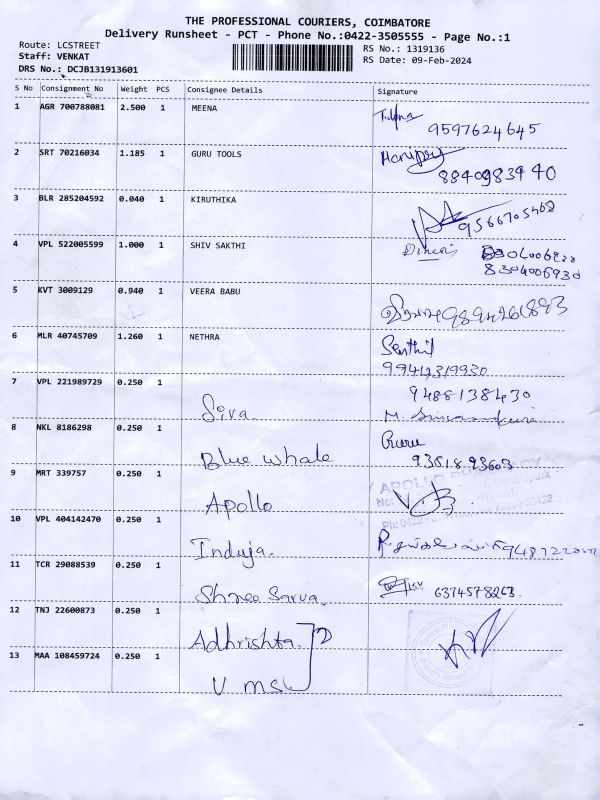 THE PROFESSIONAL COURIERS, COIMBATORE
Delivery Runsheet - PCT - Phone No.:0422-3505555 - Page No.:1
Route: LCSTREET
RS No.: 1319136
Staff: VENKAT
RS Date: 09-Feb-2024
DRS No.: DCJB131913601
S No Consignment No Weight PCS Consignee Details Signature
1 AGR 700788081 2.500 1 MEENA
9597624645
2 SRT 70216034 1.185 1 GURU TOOLS
8840983940
3 BLR 285204592 0.040 1 KIRUTHIKA
9566705468
4 VPL 522005599 1.000 1 SHIV SAKTHI
8304006930
5 KVT 3009129 0.940 1 VEERA BABU
9894261893
6 MLR 40745709 1.260 1 NETHRA Senthil
9941319930
7 VPL 221989729 0.250 1 Siva. 9488138430
8 NKL 8186298 0.250 1 Blue whale Guru
9361893603
9 MRT 339757 0.250 1 Apollo
APOLLO
10 VPL 404142470 0.250 1 Induja.
11 TCR 29088539 0.250 1 Shree Sarva. 6374578263.
12 TNJ 22600873 0.250 1 Adhrishta.
13 MAA 108459724 0.250 1 V ms